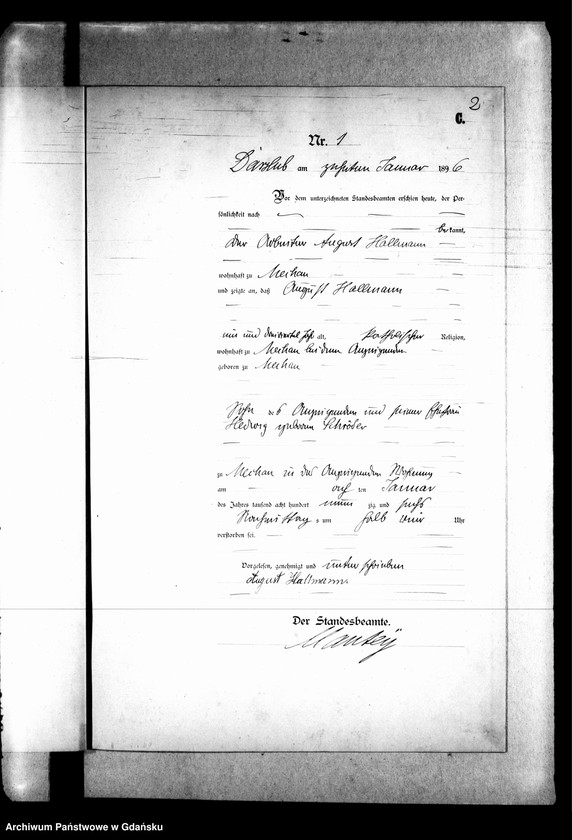 2
C.
Nr. 1
Darslub am zehnten Januar 1896
Vor dem unterzeichneten Standesbeamten erschien heute, der Per-
sönlichkeit nach
bekannt,
der Arbeiter August Hallmann
wohnhaft zu Mechau
und zeigte an, daß August Hallmann
ein und dreiviertel Jahr alt, katholischer Religion,
wohnhaft zu Mechau bei dem Anzeigenden
geboren zu Mechau
Sohn des Anzeigenden und seiner Ehefrau
Hedwig geborene Schröder
zu Mechau in des Anzeigenden Wohnung
am ten Januar
des Jahres tausend acht hundert neun zig und sechs
Nachmittags um halb Uhr
verstorben sei.
Vorgelesen, genehmigt und unterschrieben
August Hallmann
Der Standesbeamte.
Archiwum Państwowe w Gdańsku